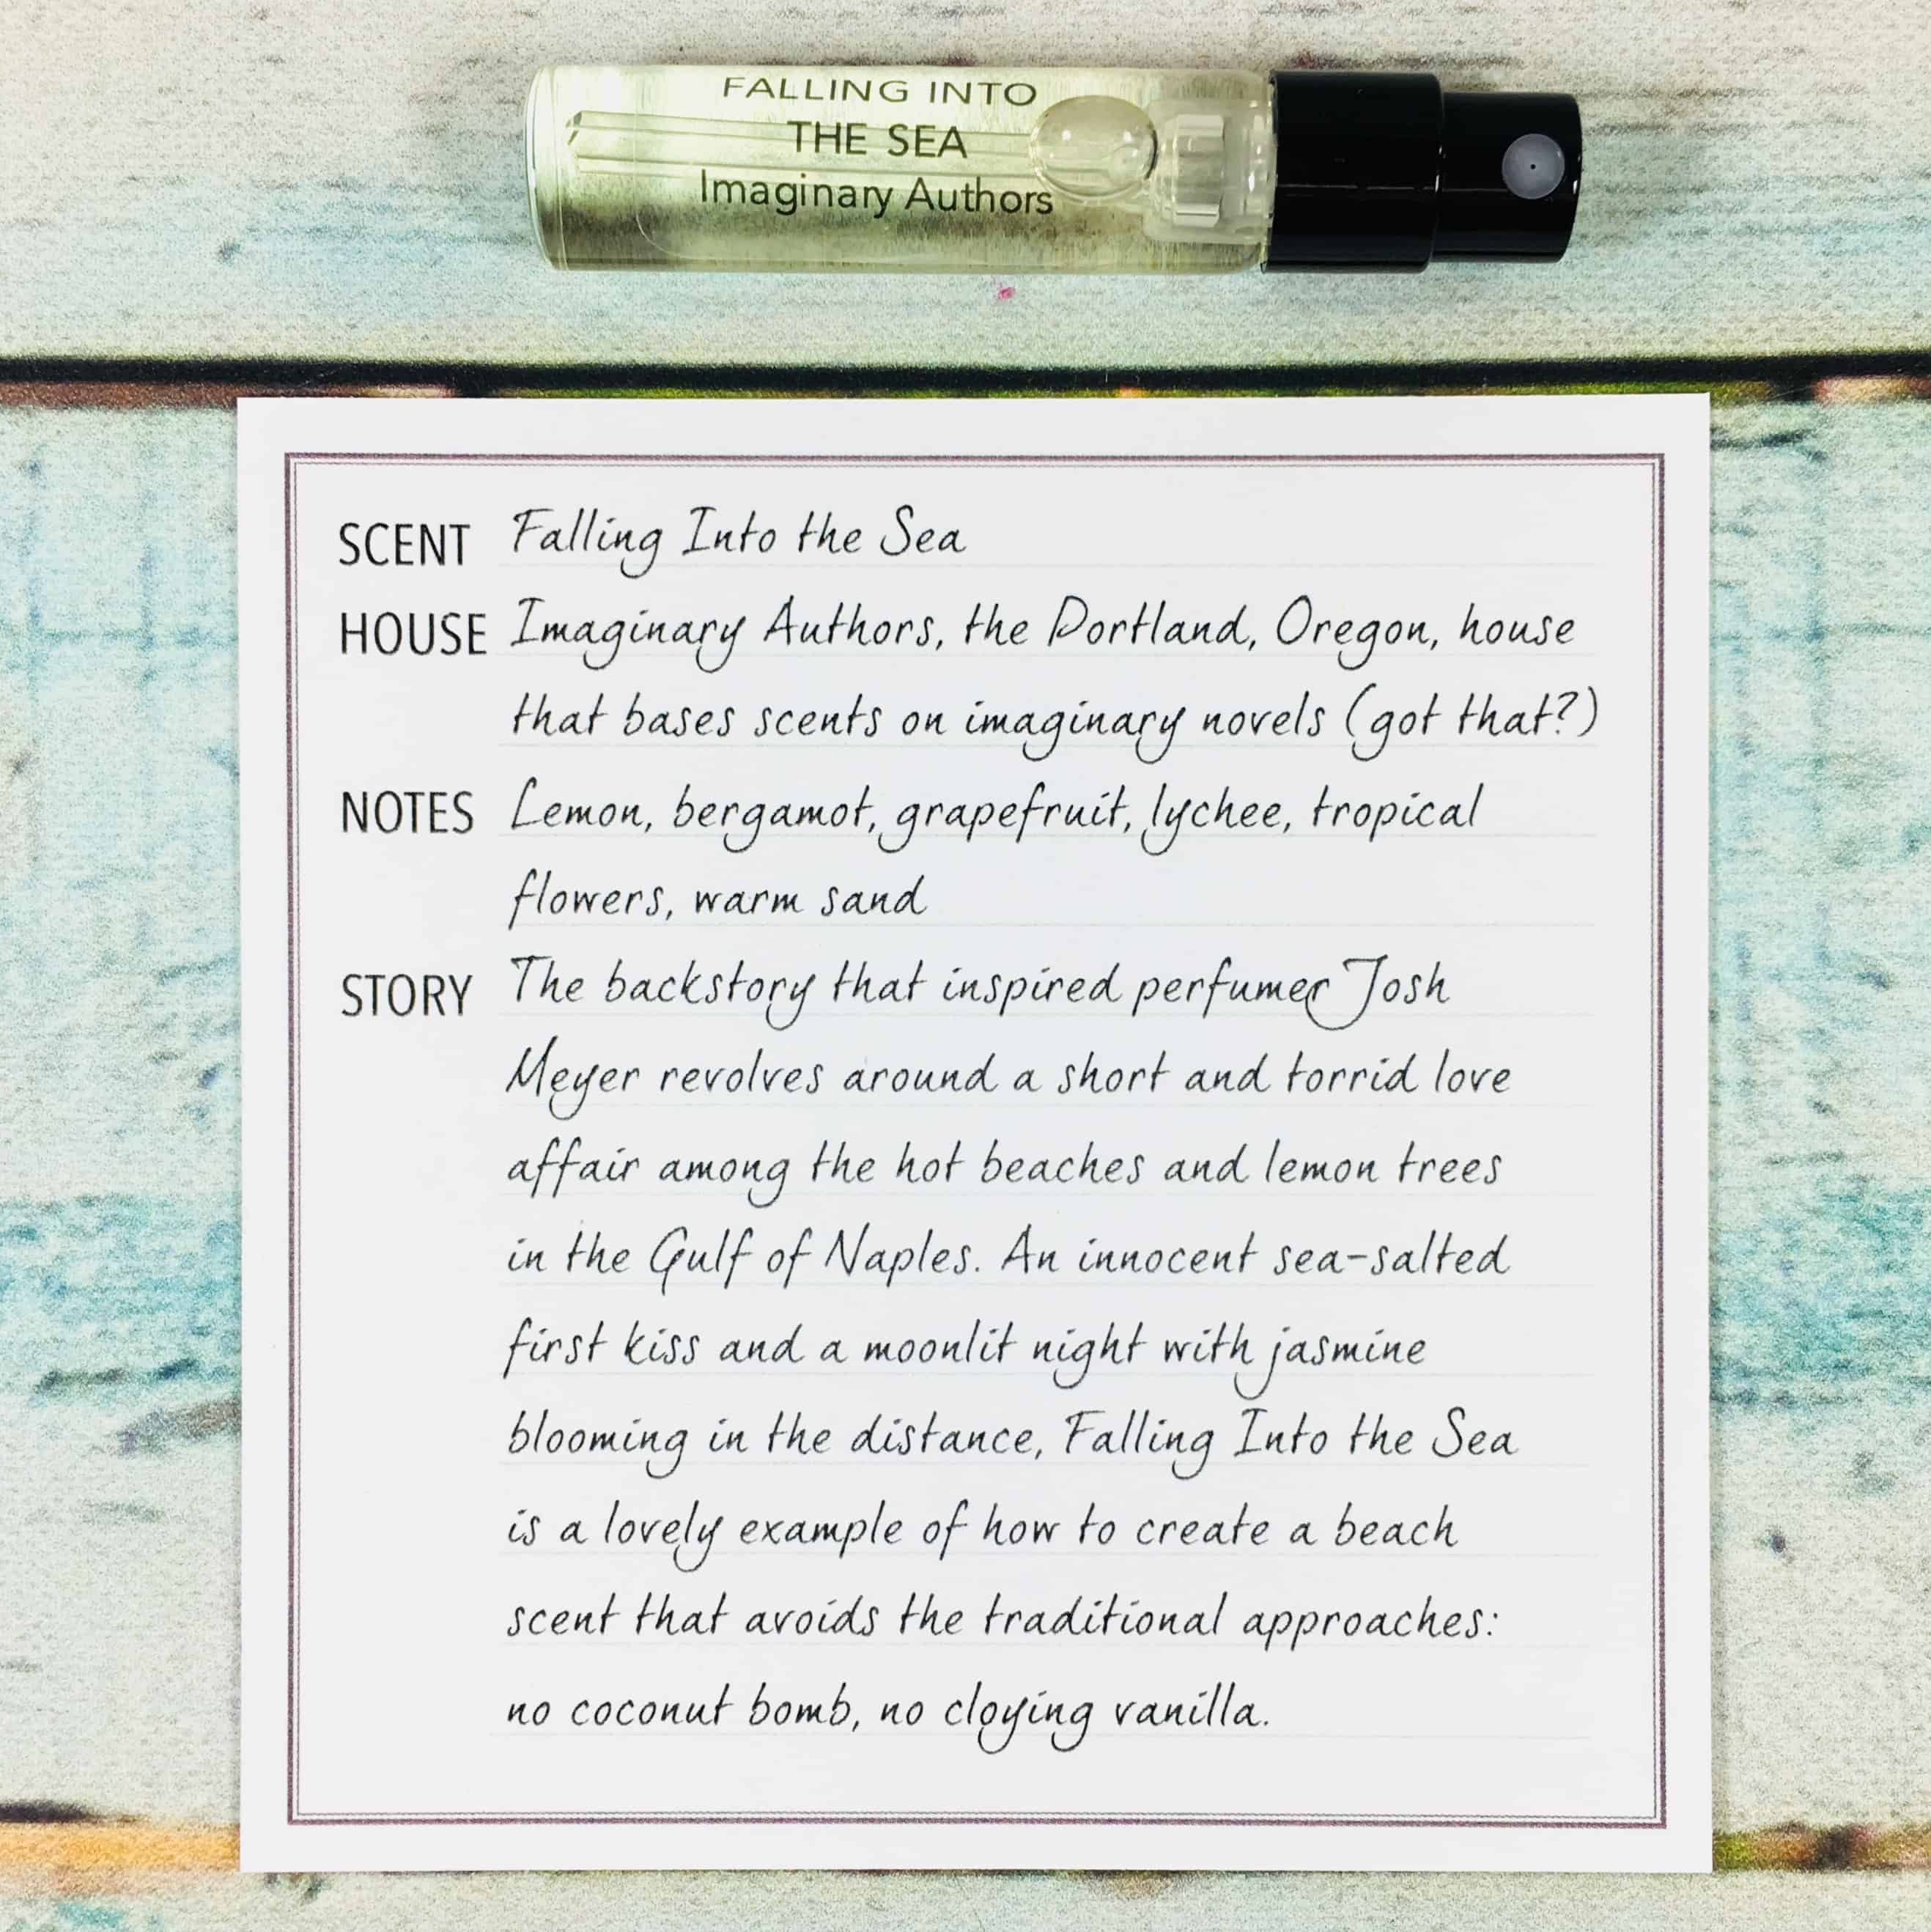 FALLING INTO
THE SEA
Imaginary Authors
SCENT Falling Into the Sea
HOUSE Imaginary Authors, the Portland, Oregon, house
that bases scents on imaginary novels (got that?)
NOTES Lemon, bergamot, grapefruit, lychee, tropical
flowers, warm sand
STORY The backstory that inspired perfumer Josh
Meyer revolves around a short and torrid love
affair among the hot beaches and lemon trees
in the Gulf of Naples. An innocent sea-salted
first kiss and a moonlit night with jasmine
blooming in the distance, Falling Into the Sea
is a lovely example of how to create a beach
scent that avoids the traditional approaches:
no coconut bomb, no cloying vanilla.